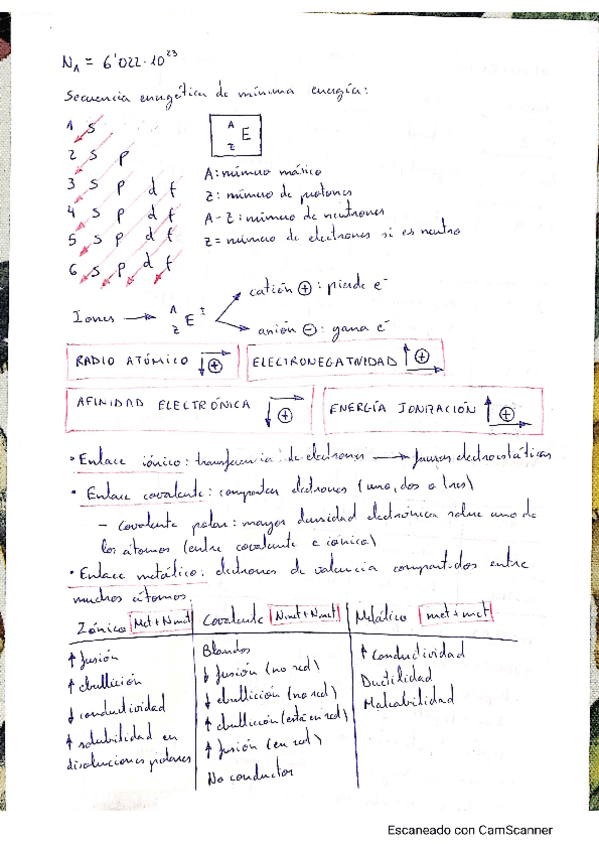 N_A = 6'022·10^23
Secuencia energética de mínima energía:
1 s
2 s p
3 s p d f
4 s p d f
5 s p d f
6 s p d f
A
Z E
A: número másico
Z: número de protones
A-Z: número de neutrones
Z = número de electrones si es neutro
Iones → A Z E ±
catión ⊕: pierde e⁻
anión ⊖: gana e⁻
RADIO ATÓMICO ↓→ ⊕
ELECTRONEGATIVIDAD ↑→ ⊕
AFINIDAD ELECTRÓNICA ↓→ ⊕
ENERGÍA IONIZACIÓN ↑→ ⊕
• Enlace iónico: transferencia de electrones → fuerzas electrostáticas
• Enlace covalente: comparten electrones (uno, dos o tres)
- Covalente polar: mayor densidad electrónica sobre uno de
los átomos (entre covalente e iónico)
• Enlace metálico: electrones de valencia compartidos entre
muchos átomos.
Iónico Met + Nmet
↑ fusión
↑ ebullición
↓ conductividad
↑ solubilidad en
disoluciones polares
Covalente Nmet + Nmet
Blandos
↓ fusión (no red)
↓ ebullición (no red)
↑ ebullición (está en red)
↑ fusión (en red)
No conductor
Metálico met + met
↑ Conductividad
Ductilidad
Maleabilidad
Escaneado con CamScanner